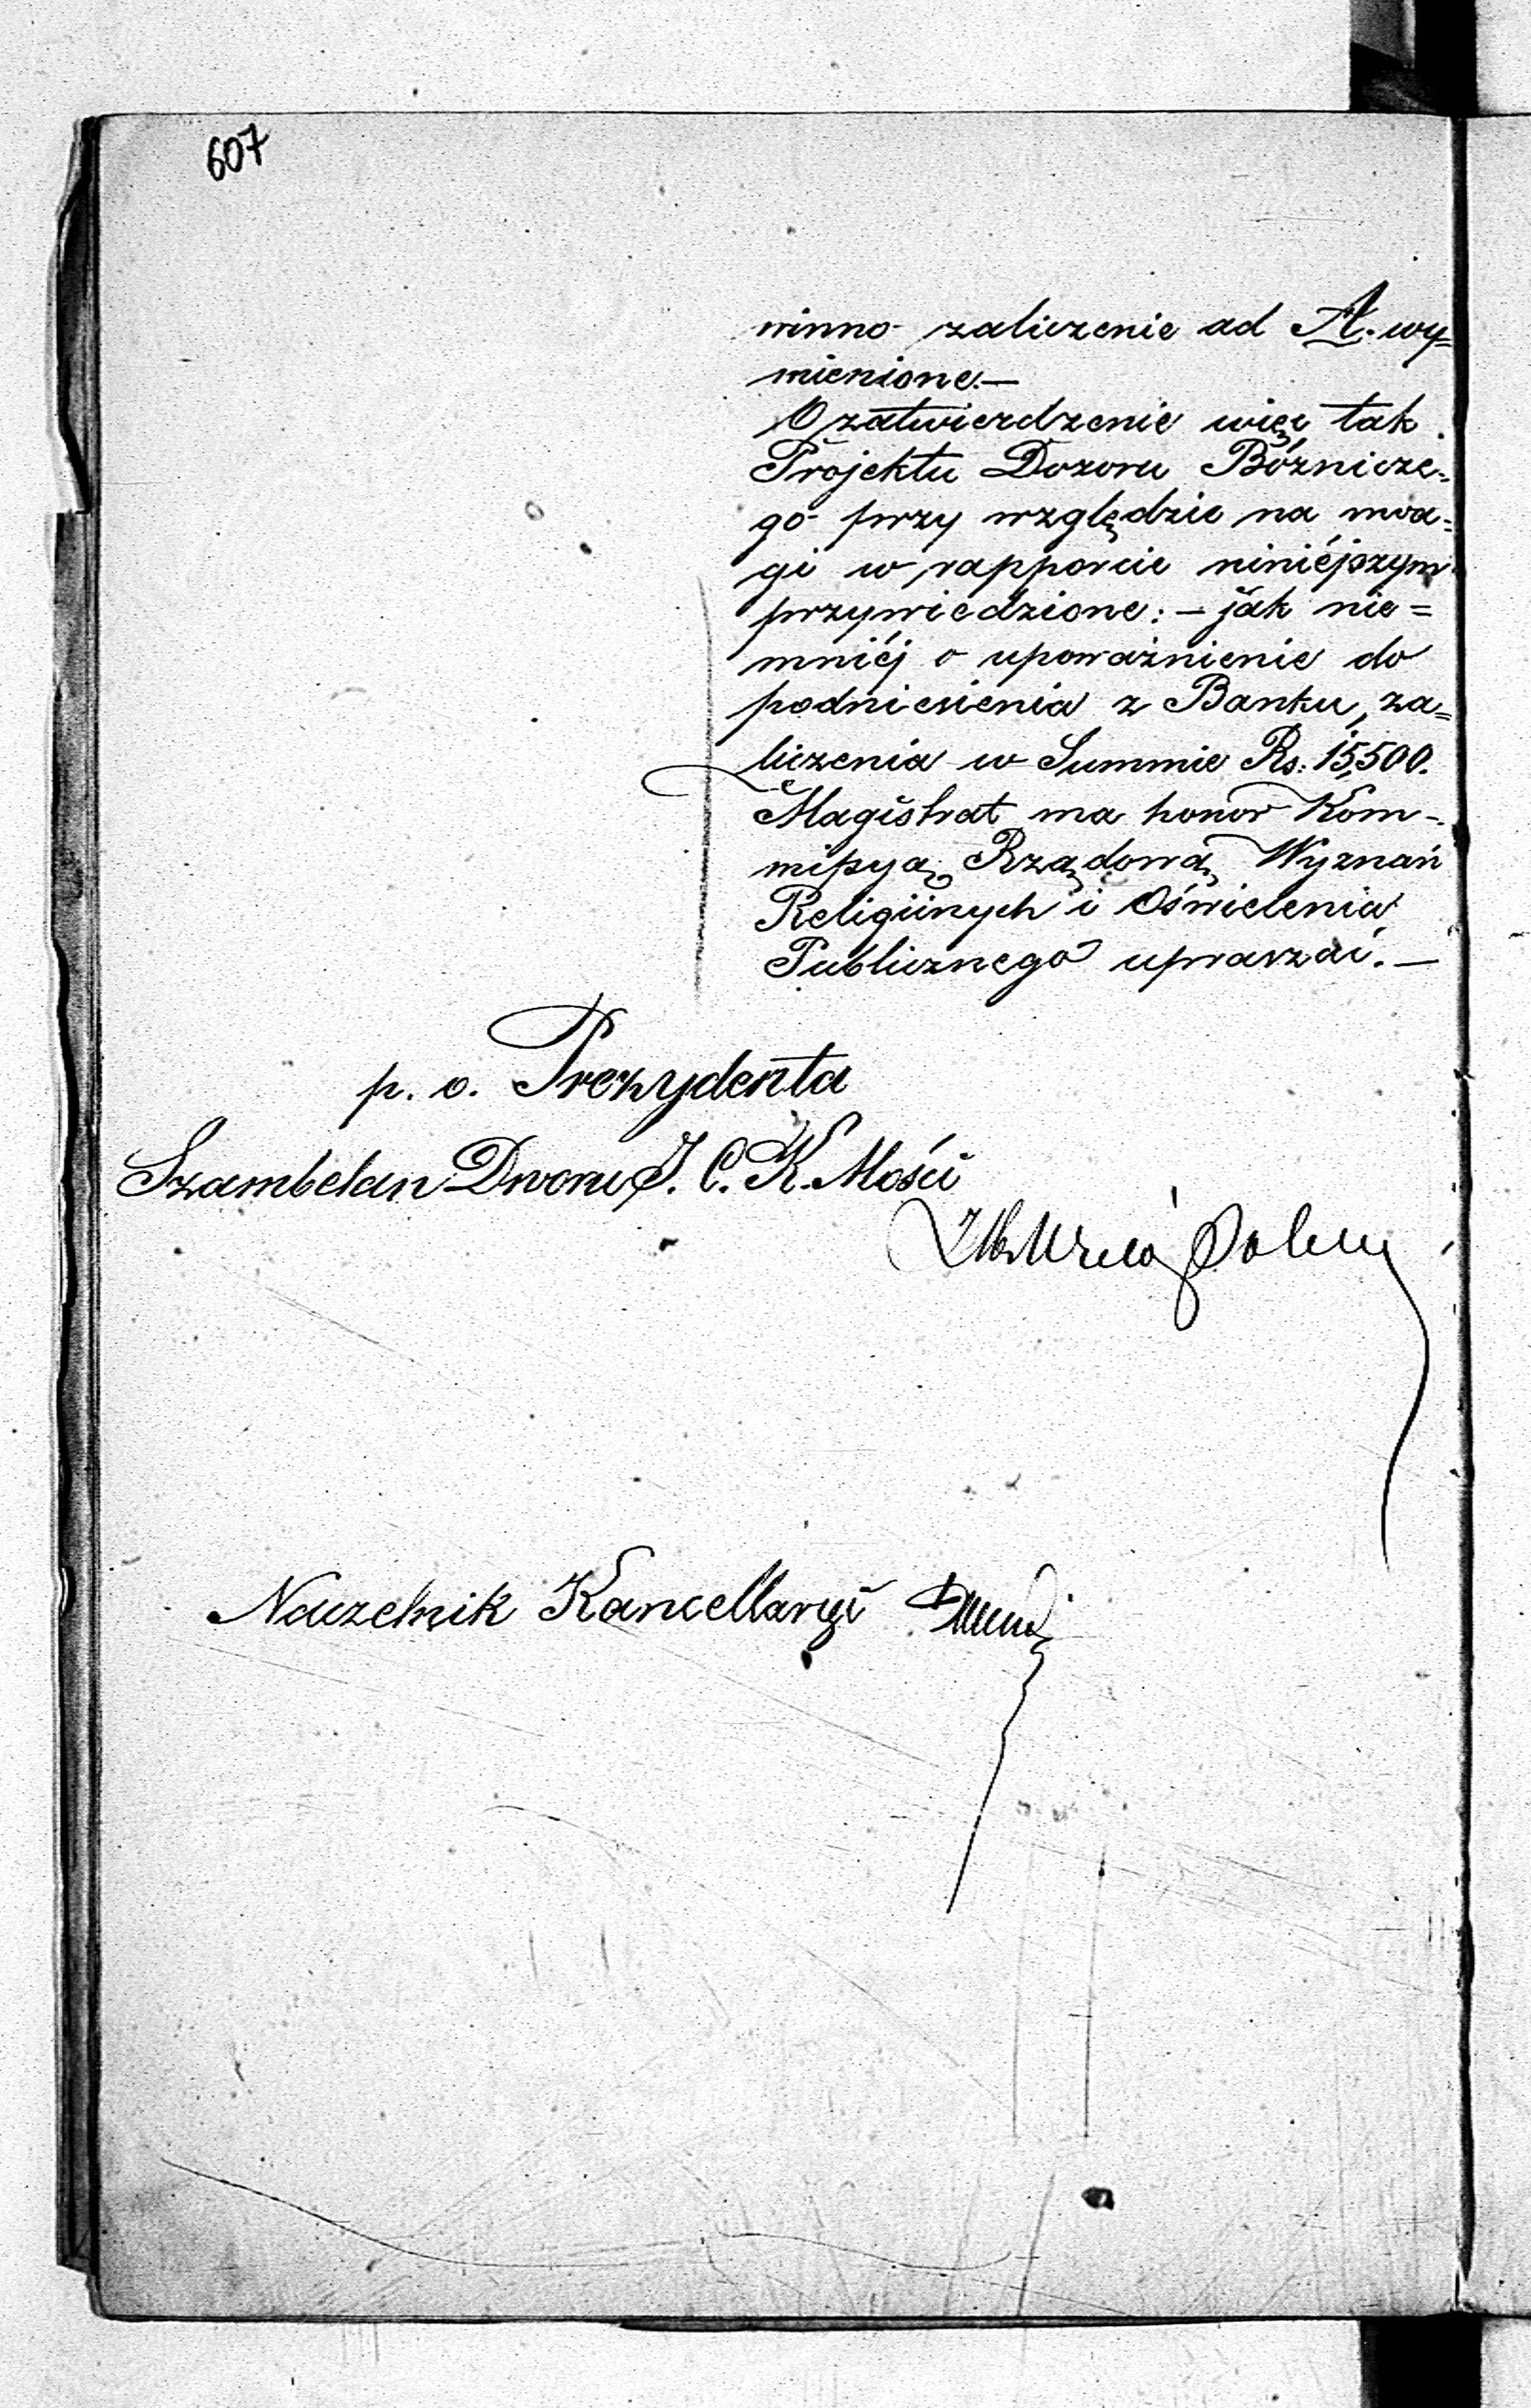 607
winno zaliczenie ad A. wy=
mienione.—
O zatwierdzenie więc tak
Projektu Dozoru Bóżnicze-
go przy względzie na uwa-
gi w rapporcie niniéjszym
przywiedzione: — jak nie=
mniéj o upoważnienie do
podniesienia z Banku, za=
liczenia w Summie Rs: 15,500.
Magistrat ma honor Kom-
missyą Rządową Wyznań
Religijnych i Oświecenia
Publicznego upraszać.—
p. o. Prezydenta
Szambelan Dworu J. C. K. Mości
Naczelnik Kancellaryi